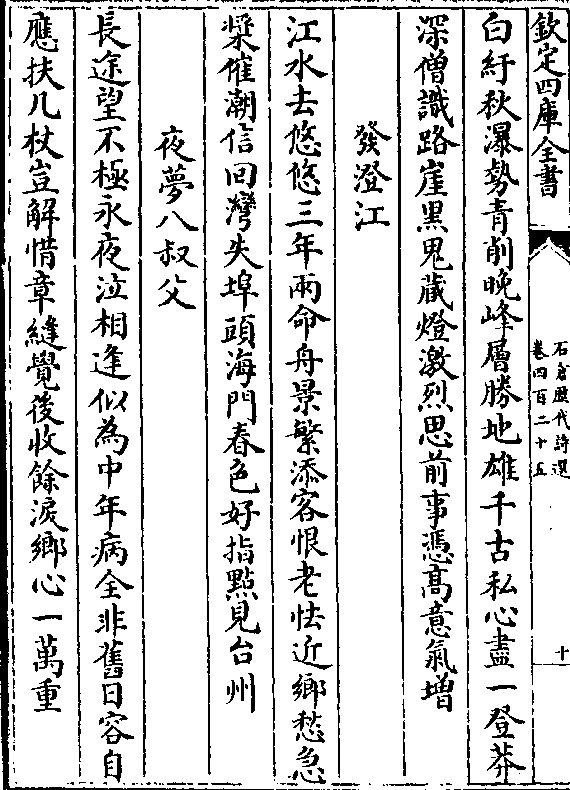 欽定四庫全書
石倉歷代詩選
卷四百二十五
十
白紵秋瀑勢青削晚峰層勝地雄千古私心盡一登莽
深僧識路崖黑鬼蔵燈激烈思前事憑髙意氣增
發澄江
江水去悠悠三年兩命舟景繁添客恨老怯近鄉愁急
槳催潮信回灣失埠頭海門春色好指㸃見台州
夜夢八叔父
長途望不極永夜泣相逢似為中年病全非舊日容自
應扶几杖豈解惜章縫覺後收餘淚鄉心一萬重